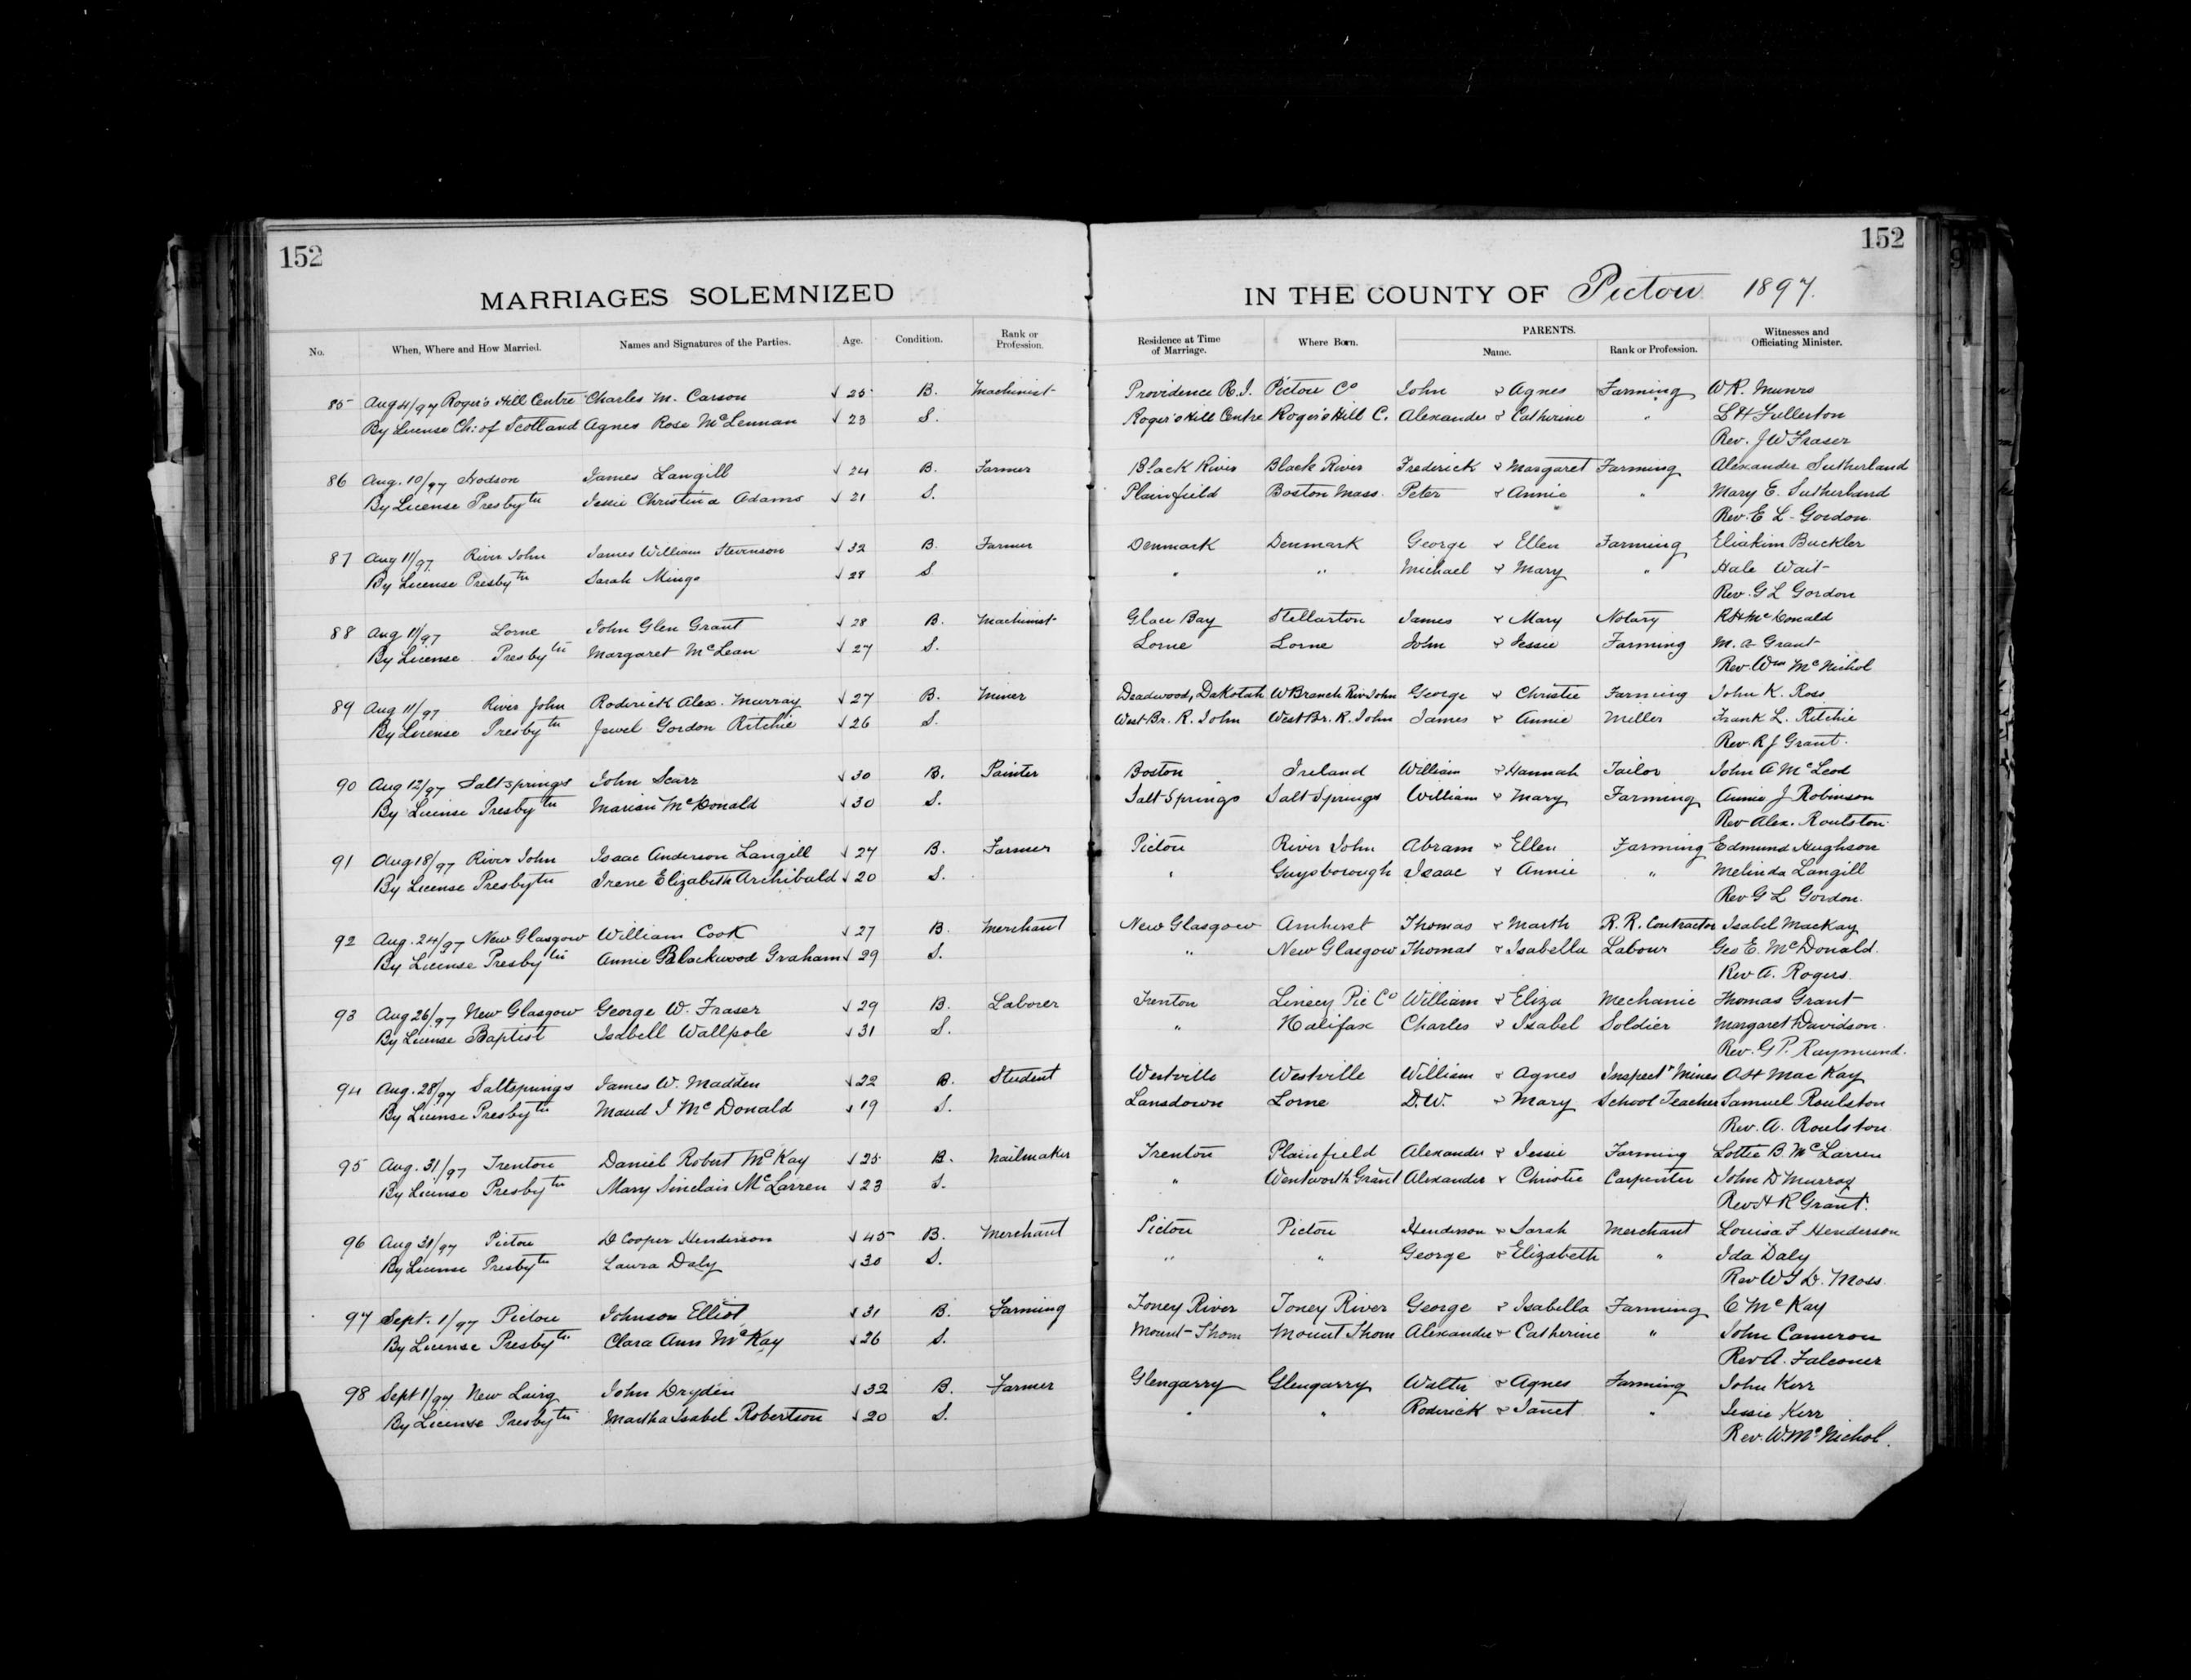 152
152
MARRIAGES SOLEMNIZED IN THE COUNTY OF Pictou 1897.
No. When, Where and How Married. Names and Signatures of the Parties. Age. Condition. Rank or Profession. Residence at Time of Marriage. Where Born. PARENTS. Name. Rank or Profession. Witnesses and Officiating Minister.
85 Aug 4/97 Roger's Hill Centre Charles M. Carson 25 B. Machinist Providence R.I. Pictou Co John & Agnes Farming W R. Munro
By License Ch: of Scotland Agnes Rose McLennan 23 S. Roger's Hill Centre Roger's Hill C. Alexander & Catherine " L H Fullerton
Rev. J W Fraser
86 Aug. 10/97 Hodson James Langill 24 B. Farmer Black River Black River Frederick & Margaret Farming Alexander Sutherland
By License Presbytn Jessie Christina Adams 21 S. Plainfield Boston Mass. Peter & Annie " Mary E. Sutherland
Rev. E L. Gordon.
87 Aug 11/97. River John James William Stevenson 32 B. Farmer Denmark Denmark George & Ellen Farming Eliakim Buckler
By License Presbytn Sarah Mingo 28 S. " " Michael & Mary " Hale Wait
Rev. G L Gordon
88 Aug 11/97 Lorne John Glen Grant 28 B. Machinist Glace Bay Stellarton James & Mary Notary R H McDonald
By License Presbytn Margaret McLean 27 S. Lorne Lorne John & Jessie Farming M. A Grant
Rev. Wm McNichol
89 Aug 11/97 River John Roderick Alex. Murray 27 B. Miner Deadwood, Dakotah W Branch Riv John George & Christie Farming John K. Ross
By License Presbytn Jewel Gordon Ritchie 26 S. West Br. R. John West Br. R. John James & Annie Miller Frank L. Ritchie
Rev. R J Grant.
90 Aug 12/97 Saltsprings John Scarr 30 B. Painter Boston Ireland William & Hannah Tailor John A McLeod
By License Presbytn Marion McDonald 30 S. Salt Springs Salt Springs William & Mary Farming Annie J Robinson
Rev Alex. Roulston.
91 Aug 18/97 River John Isaac Anderson Langill 24 B. Farmer Pictou River John Abram & Ellen Farming Edmund Hughson
By License Presbytn Irene Elizabeth Archibald 20 S. " Guysborough Isaac & Annie " Melinda Langill
Rev G L Gordon.
92 Aug. 24/97 New Glasgow William Cook 27 B. Merchant New Glasgow Amherst Thomas & Marth R. R. Contractor Isabel MacKay
By License Presbytn Annie Blackwood Graham 29 S. " New Glasgow Thomas & Isabella Labour Geo E. McDonald.
Rev A. Rogers.
93 Aug 26/97 New Glasgow George W. Fraser 29 B. Laborer Trenton Linacy Pic Co William & Eliza Mechanic Thomas Grant
By License Baptist Isabell Wallpole 31 S. " Halifax Charles & Isabel Soldier Margaret Davidson.
Rev. G P. Raymund.
94 Aug. 28/97 Saltsprings James W. Madden 22 B. Student Westville Westville William & Agnes Inspectr Mines A H MacKay
By License Presbytn Maud I McDonald 19 S. Lansdown Lorne D.W. & Mary School Teacher Samuel Roulston
Rev. A. Roulston.
95 Aug. 31/97 Trenton Daniel Robert McKay 25 B. Nailmaker Trenton Plainfield Alexander & Jessie Farming Lottie B. McLarren
By License Presbytn Mary Sinclair McLarren 23 S. " Wentworth Grant Alexander & Christie Carpenter John D Murray
Rev H R Grant.
96 Aug 31/97 Pictou D Cooper Henderson 45 B. Merchant Pictou Pictou Henderson & Sarah Merchant Louisa F Henderson
By License Presbytn Laura Daly 30 S. " " George & Elizabeth " Ida Daly
Rev W G D. Moss.
97 Sept. 1/97 Pictou Johnson Elliot 31 B. Farming Toney River Toney River George & Isabella Farming C McKay
By License Presbytn Clara Ann McKay 26 S. Mount-Thom Mount Thom Alexander & Catherine " John Cameron
Rev A. Falconer
98 Sept 1/97 New Lairg John Dryden 32 B. Farmer Glengarry Glengarry Walter & Agnes Farming John Kerr
By License Presbytn Martha Isabel Robertson 20 S. " " Roderick & Janet " Jessie Kerr
Rev. W. McNichol.